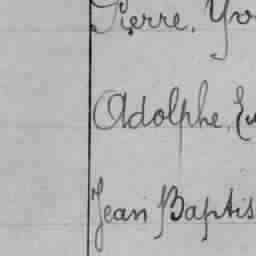 Pierre, Yvo
Adolphe, Eu
Jean Baptis